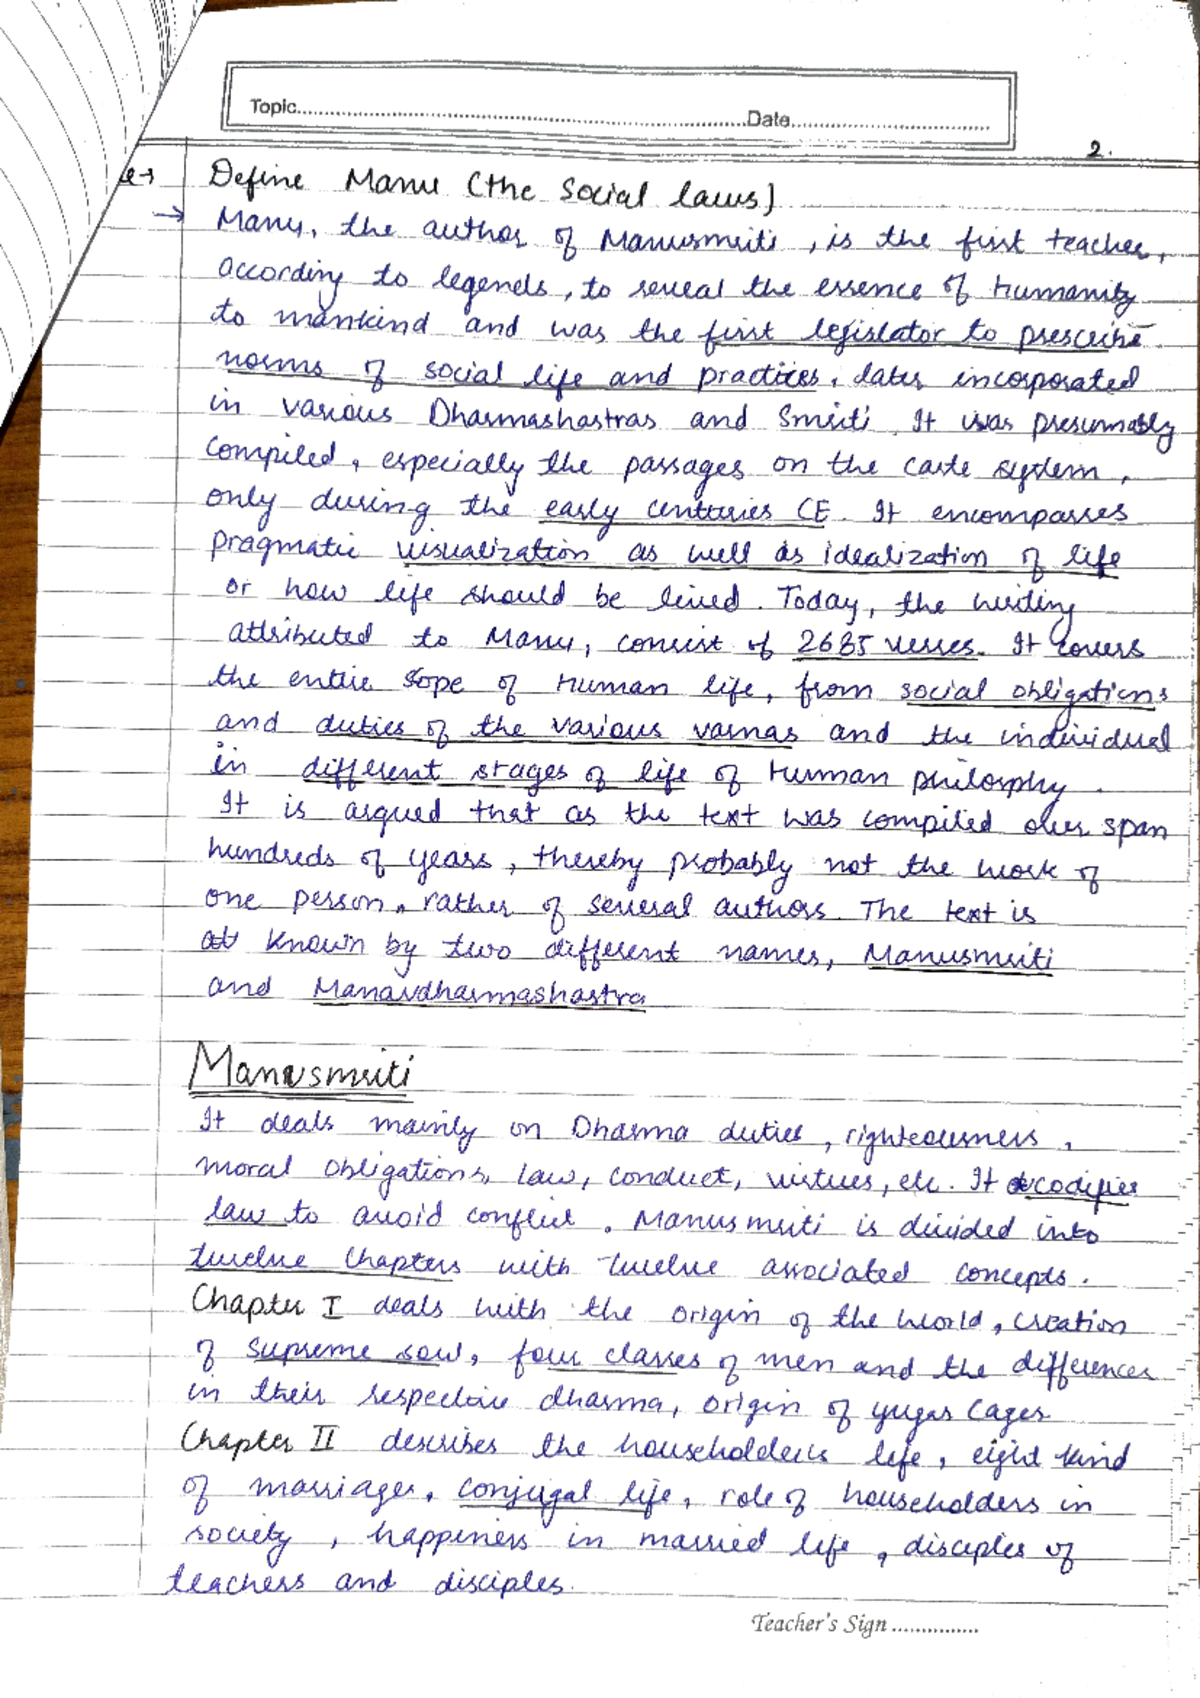 Topic..........Date..........
2.
Define Manu (the Social laws)
→ Manu, the author of Manusmriti, is the first teacher,
according to legends, to reveal the essence of Humanity
to mankind and was the first legislator to prescribe
norms of social life and practices, later incorporated
in various Dharmashastras and Smriti. It was presumably
compiled, especially the passages on the caste system,
only during the early centuries CE. It encompasses
pragmatic visualization as well as idealization of life
or how life should be lived. Today, the writing
attributed to Manu, consist of 2685 verses. It covers
the entire sope of Human life, from social obligations
and duties of the various varnas and the individual
in different stages of life of Human philosphy.
It is argued that as the text was compiled over span
hundreds of years, thereby probably not the work of
one person, rather of several authors. The text is
known by two different names, Manusmriti
and Manavdharmashastra
Manusmriti
It deals mainly on Dharma duties, righteousness,
moral obligations, law, conduct, virtues, etc. It codifies
law to avoid conflict. Manusmriti is divided into
twelve chapters with twelve associated concepts.
Chapter I deals with the origin of the world, creation
of supreme soul, four classes of men and the differences
in their respective dharma, origin of yugas (ages
Chapter II describes the householders life, eight kind
of marriages, conjugal life, role of householders in
society, happiness in married life, disciples of
teachers and disciples.
Teacher's Sign ...............